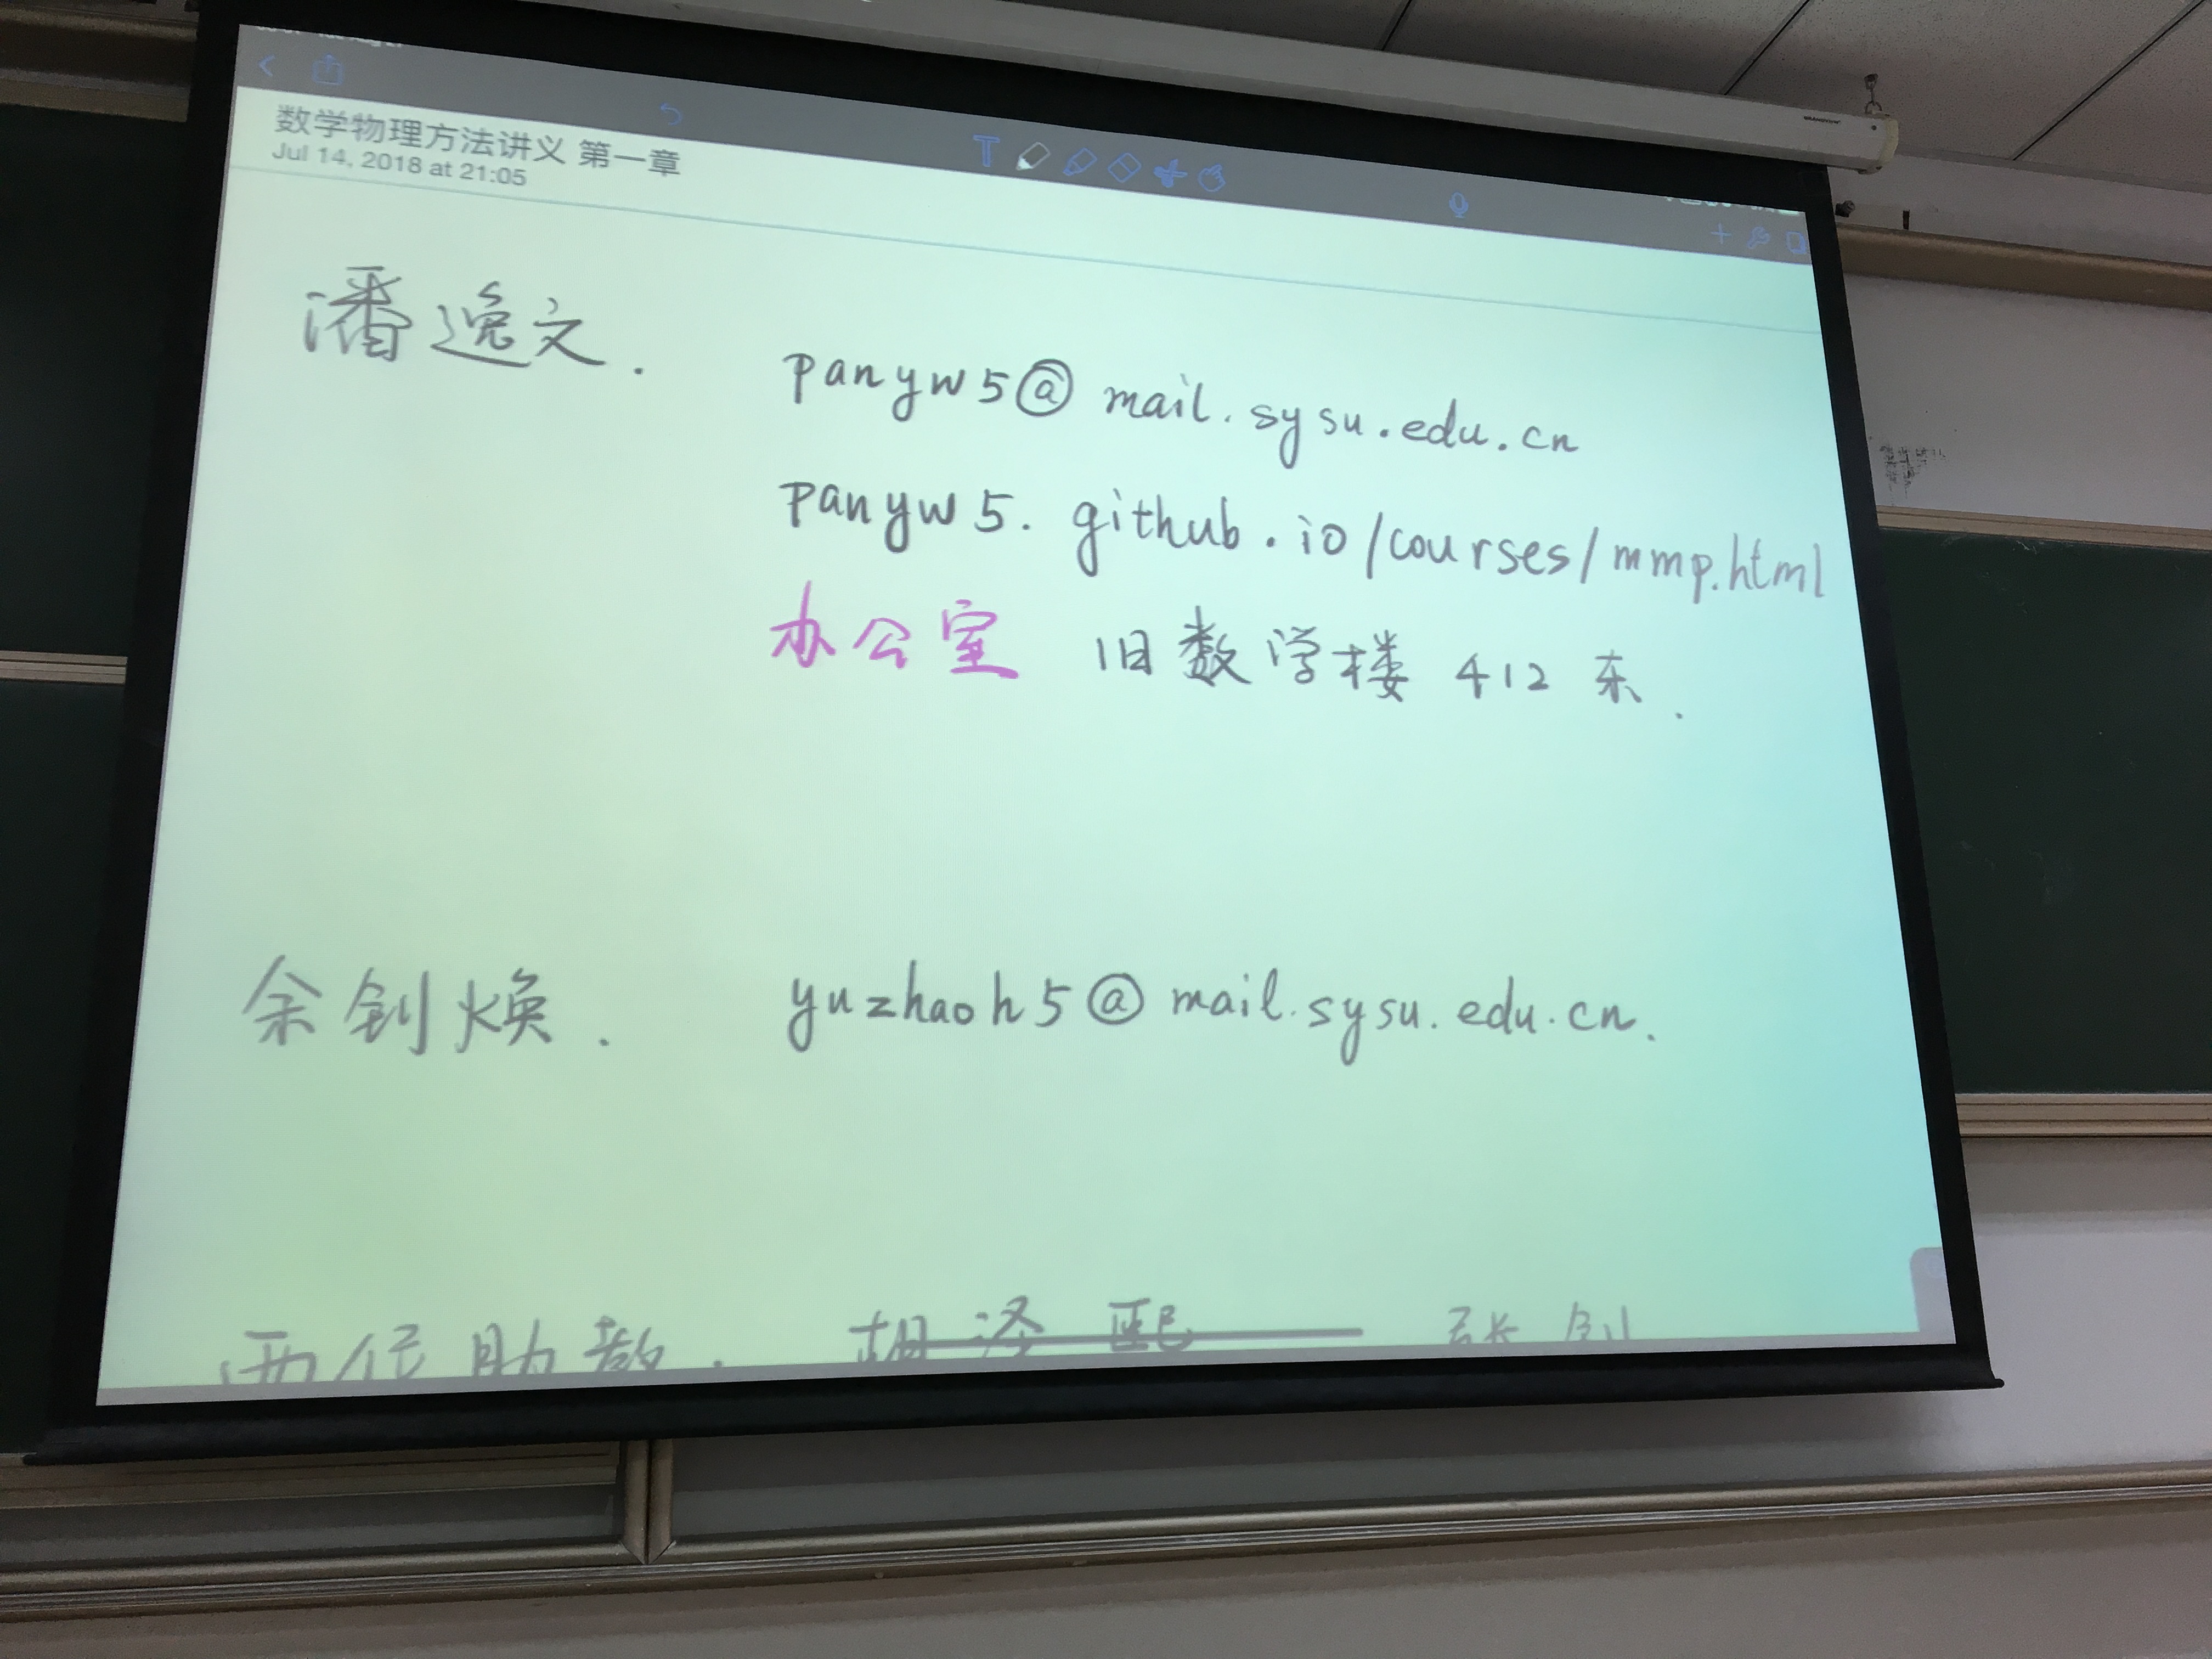 数学物理方法讲义 第一章
Jul 14, 2018 at 21:05
潘逸文.
panyw5@mail.sysu.edu.cn
panyw5.github.io/courses/mmp.html
办公室 旧数学楼 412 东.
余钊焕. yuzhaoh5@mail.sysu.edu.cn.
两位助教. 胡泽